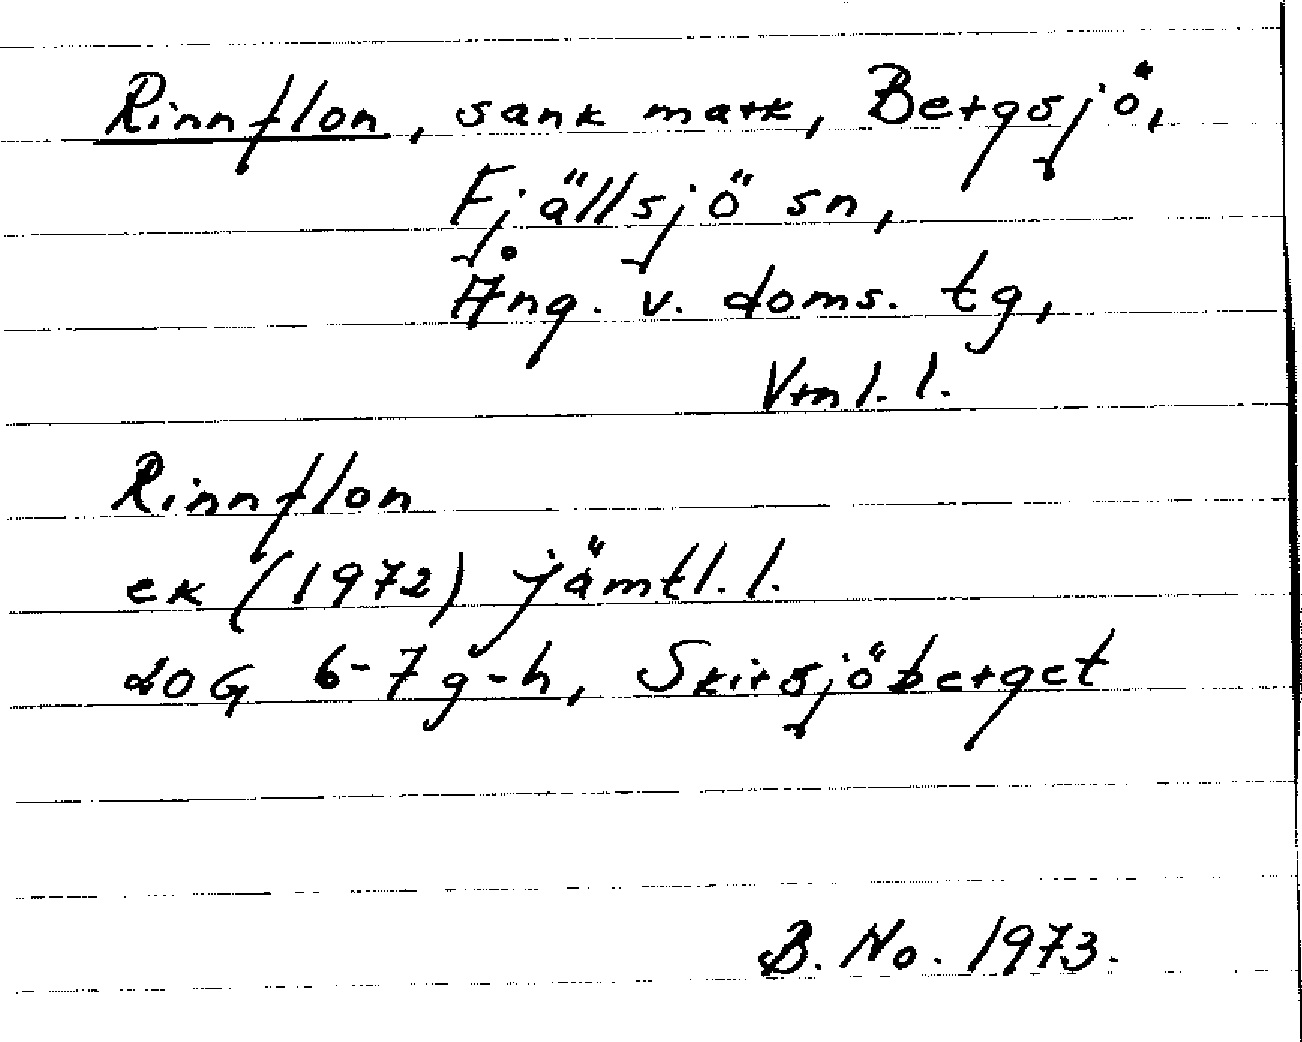 Rinnflon, sank mark, Bergsjö,
Fjällsjö sn,
Ång. v. doms. tg,
Vrnl. l.
Rinnflon
ek (1972) Jämtl. l.
20G 6-7 g-h, Skirsjöberget
B. No. 1973.